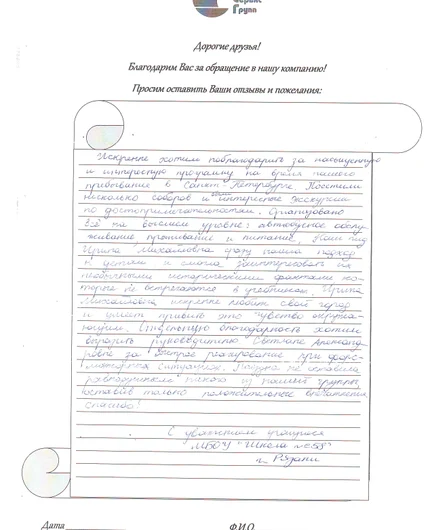 Сервис
Групп
Дорогие друзья!
Благодарим Вас за обращение в нашу компанию!
Просим оставить Ваши отзывы и пожелания:
Искренне хотим поблагодарить за насыщенную
и интересную программу на время нашего
пребывание в Санкт-Петербурге. Посетили
несколько соборов и интересные экскурсии
по достопримечательностям. Организовано
всё на высшем уровне: автобусное обслу-
живание, проживание и питание. Наш гид
Ирина Михайловна сразу нашла подход
к детям и смогла заинтересовать их
необычными историческими фактами ко-
торые не встречаются в учебниках. Ирина
Михайловна искренне любит свой город
и умеет привить это чувство окружа-
ющим. Отдельную благодарность хотим
выразить руководителю Светлане Александ-
ровне за быстрое реагирование при форс-
мажорных ситуациях. Поездка не оставила
равнодушного никого из нашей группы,
оставив только положительные впечатления.
Спасибо!
С уважением учащиеся
МБОУ "Школа №53"
г. Рязани
Дата
Ф.И.О.